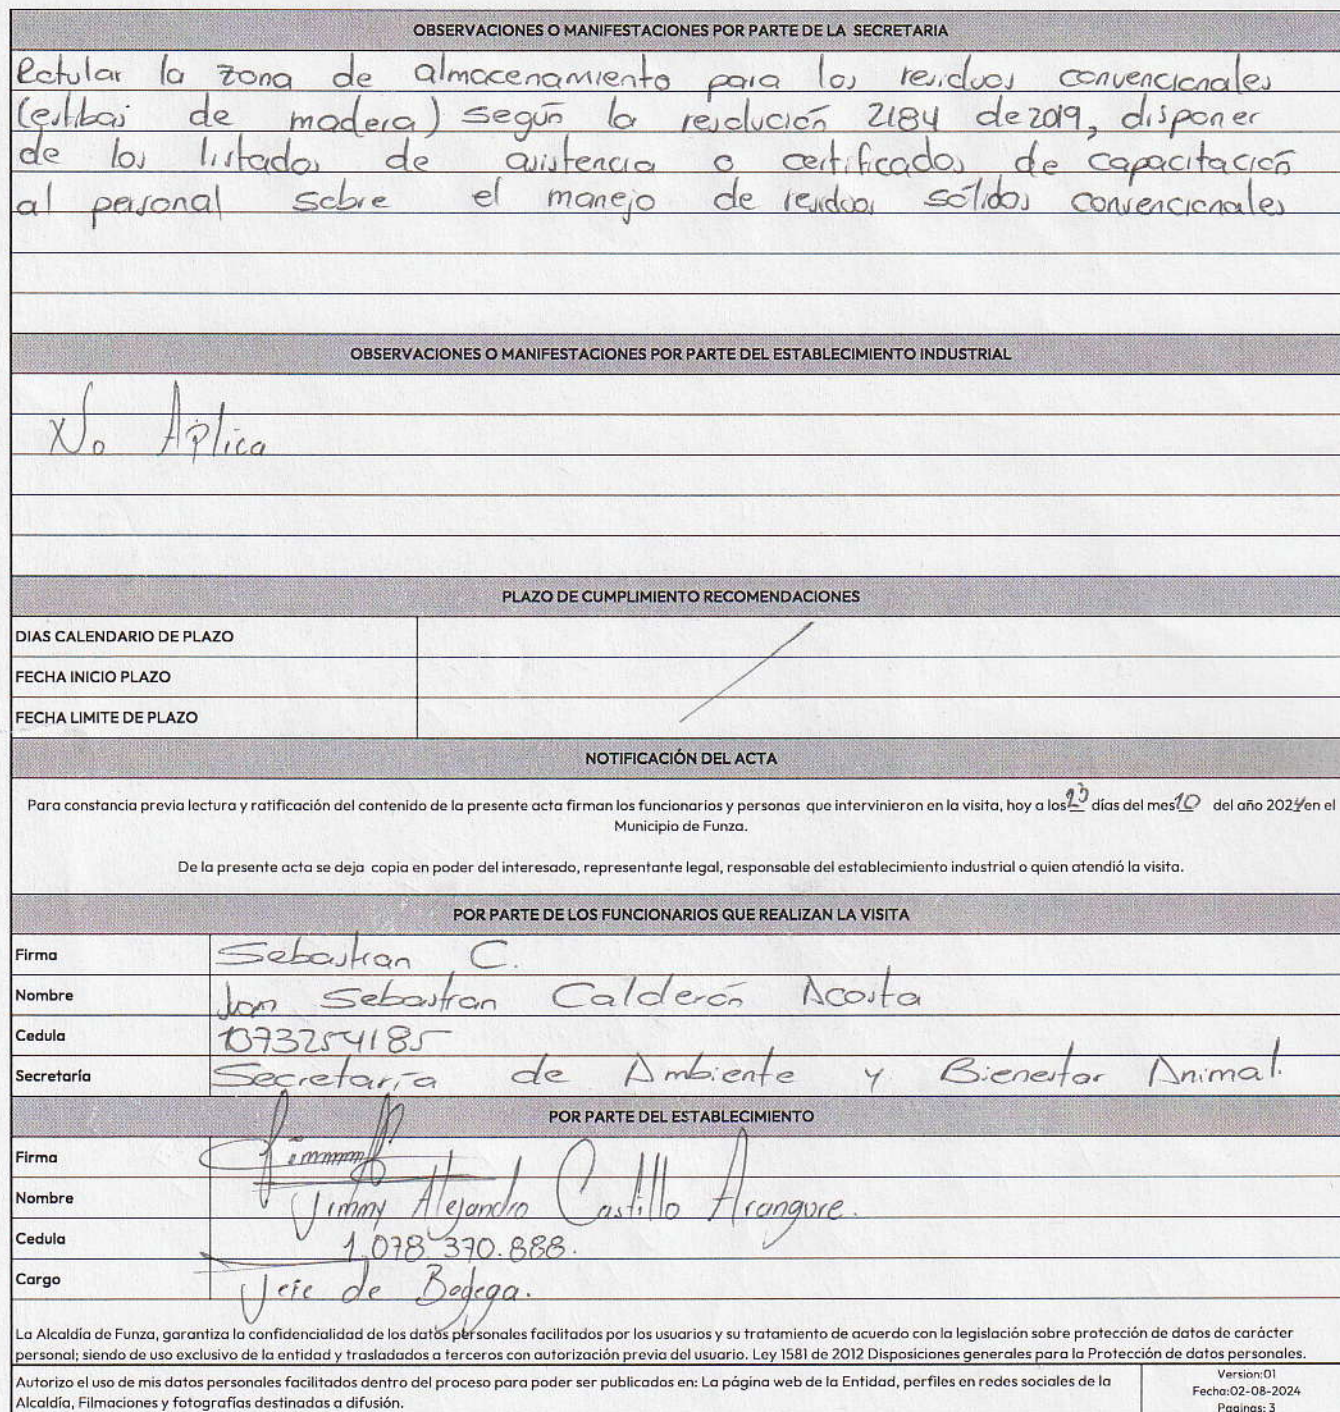 OBSERVACIONES O MANIFESTACIONES POR PARTE DE LA SECRETARIA
Rotular la zona de almacenamiento para los residuos convencionales
(estibas de madera) según la resolución 2184 de 2019, disponer
de los listados de asistencia o certificados de capacitación
al personal sobre el manejo de residuos sólidos convencionales
OBSERVACIONES O MANIFESTACIONES POR PARTE DEL ESTABLECIMIENTO INDUSTRIAL
No Aplica
PLAZO DE CUMPLIMIENTO RECOMENDACIONES
DIAS CALENDARIO DE PLAZO
FECHA INICIO PLAZO
FECHA LIMITE DE PLAZO
NOTIFICACIÓN DEL ACTA
Para constancia previa lectura y ratificación del contenido de la presente acta firman los funcionarios y personas que intervinieron en la visita, hoy a los 23 días del mes 10 del año 2024 en el
Municipio de Funza.
De la presente acta se deja copia en poder del interesado, representante legal, responsable del establecimiento industrial o quien atendió la visita.
POR PARTE DE LOS FUNCIONARIOS QUE REALIZAN LA VISITA
Firma Sebastian C.
Nombre Juan Sebastian Calderón Acosta
Cedula 1073254185
Secretaría Secretaría de Ambiente y Bienestar Animal.
POR PARTE DEL ESTABLECIMIENTO
Firma
Nombre Jimmy Alejandro Castillo Arangure.
Cedula 1.078.370.888.
Cargo Jefe de Bodega.
La Alcaldía de Funza, garantiza la confidencialidad de los datos personales facilitados por los usuarios y su tratamiento de acuerdo con la legislación sobre protección de datos de carácter
personal; siendo de uso exclusivo de la entidad y trasladados a terceros con autorización previa del usuario. Ley 1581 de 2012 Disposiciones generales para la Protección de datos personales.
Autorizo el uso de mis datos personales facilitados dentro del proceso para poder ser publicados en: La página web de la Entidad, perfiles en redes sociales de la
Alcaldía, Filmaciones y fotografías destinadas a difusión.
Version:01
Fecha:02-08-2024
Paginas: 3